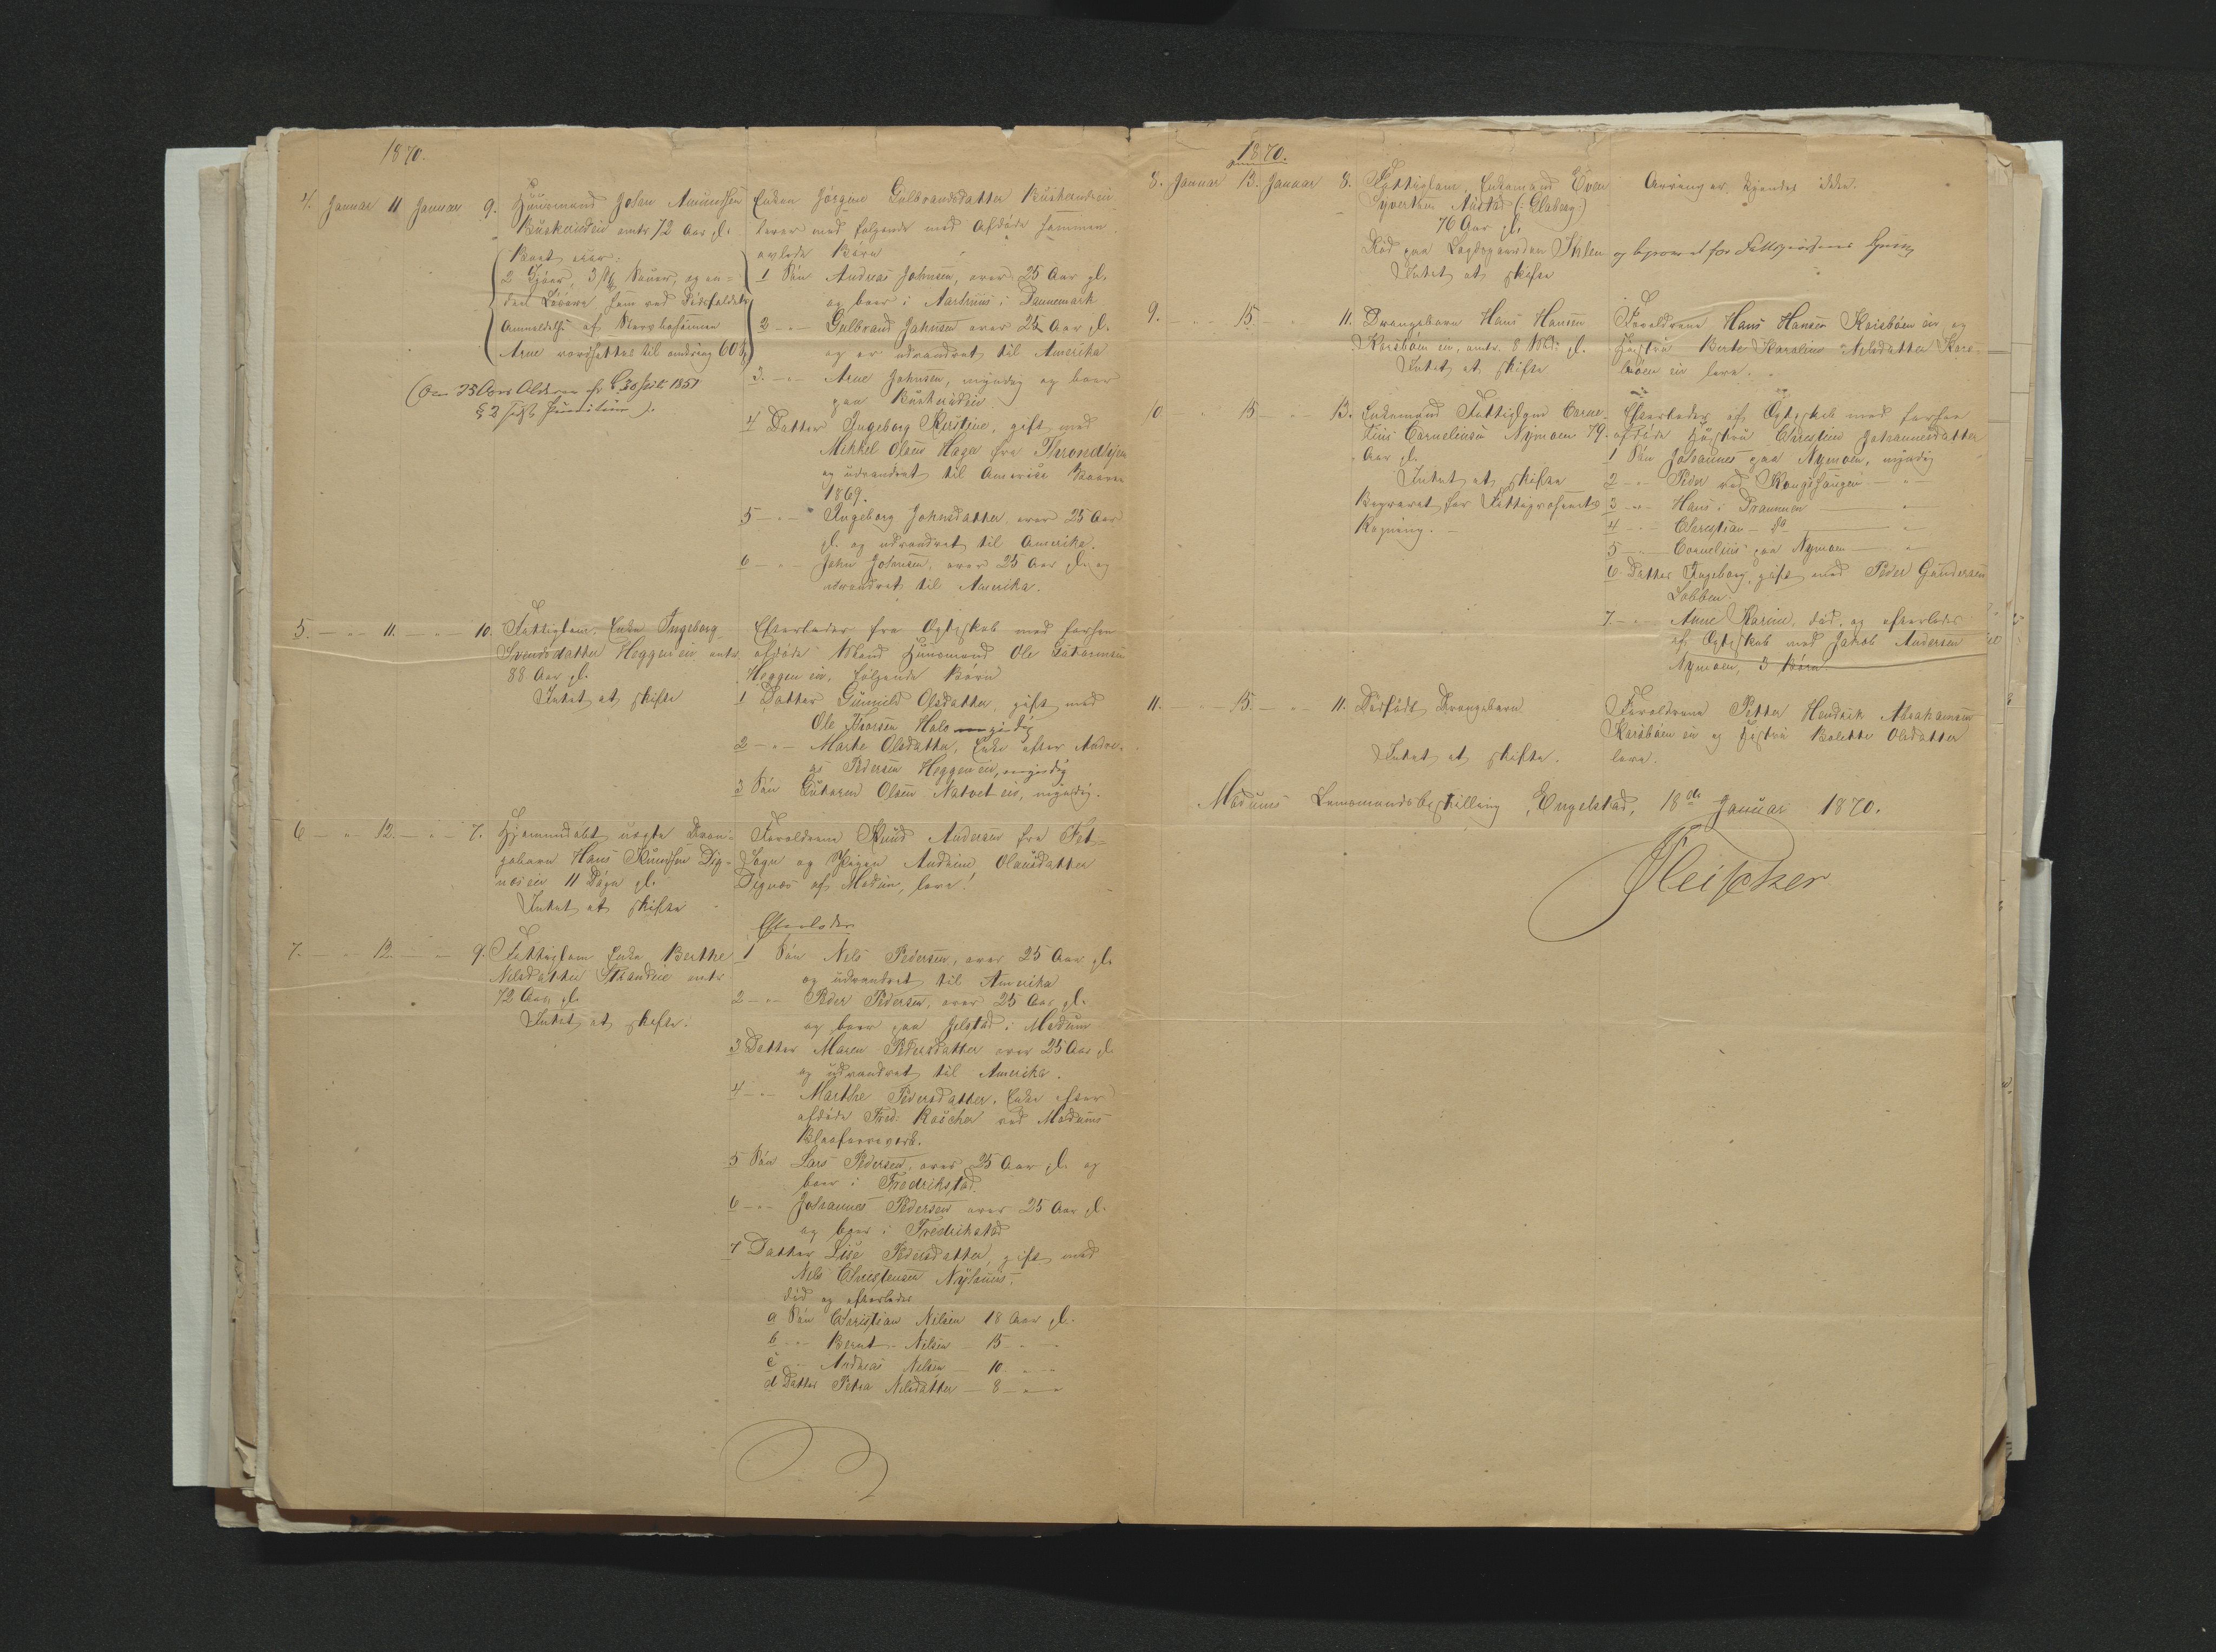 1870.
4. Januar 11 Januar 9. Huusmand John Amundsen
Buskerudeie omtr 72 Aar gl.
Boet eier:
2 Kjøer, 3 Sauer, og en-
deel Løsøre som ved Dødsfaldets
Anmeldelse af
Arne værdsattes til omtrent 60
(Om 25 Aars Alderen
§ 2
Enken Jørgine Gulbrandsdatter Buskerudeie
lever med følgende med Afdøde sammen
avlede Børn
1 Søn Andreas Johnsen, over 25 Aar gl.
og boer i Aarhuus i Dannemark
2 - " - Gulbrand Johnsen over 25 Aar gl.
og er udvandret til Amerika
3. - " - Arne Johnsen, myndig og boer
paa Buskerudeie
4 Datter Ingeborg Kirstine, gift med
Mikkel Olsen Haga fra Throndhjem
og udvandret til Amerika Vaaren
1869.
5 - " - Ingeborg Johnsdatter over 25 Aar
gl. og udvandret til Amerika.
6 - " - John Johnsen, over 25 Aar gl. og
udvandret til Amerika.
5. - " - 11. - " - 10. Fattiglem, Enke Ingeborg
Svendsdatter Heggen eie omtr
88 Aar gl.
Intet at skifte
Efterlader fra Ægteskab med forhen
afdøde Mand Huusmand Ole Guttormsen
Heggen eie, følgende Børn
1 Datter Gunnild Olsdatter, gift med
Ole Iversen Hole myndig
2 - " - Marte Olsdatter, Enke efter Andre-
as Pedersen Heggen eie, myndig
3 Søn Guttorm Olsen Natvet eie, myndig.
6 - " - 12. - " - 7. Hjemmedøbt uægte Dren-
gebarn Hans Knudsen Dig-
næs eie 11 Dage gl.
Intet at skifte
Forældrene Knud Andersen fra
Sogn og Pigen Andrine Olausdatter
Dignæs af Modum, leve.
7. - " - 12. - " - 9. Fattiglem Enke Berthe
Nilsdatter Strandeie omtr
72 Aar gl.
Intet at skifte.
Efterlader
1 Søn Nils Pedersen, over 25 Aar gl.
og udvandret til Amerika
2 - " - Peder Pedersen, over 25 Aar gl.
og boer paa Jelstad i Modum
3 Datter Maren Pedersdatter over 25 Aar gl.
og udvandret til Amerika.
4 - " - Marthe Pedersdatter, Enke efter
afdøde Fred: Roscher ved Modums
Blaafarveværk.
5 Søn Lars Pedersen, over 25 Aar gl. og
boer i Fredrikstad.
6 - " - Johannes Pedersen over 25 Aar gl.
og boer i Fredrikstad
7 Datter Lise Pedersdatter, gift med
Nils Christensen Nyhuus.
død og efterlader
a Søn Christian Nilsen 18 Aar gl.
b - " - Bernt - Nilsen - 15 - " -
c - " - Andreas Nilsen - 10 - " -
d Datter Petra Nilsdatter - 8 - " -
1870.
8. Januar 13. Januar 8. Fattiglem, Enkemand Even
Syvertsen Austad (: Glaberg :)
76 Aar gl.
Død paa Lægdegaarden og begravet for Fattigvæsenets Regning
Intet at skifte
Arvinger, kjendes ikke.
9. - " - 15 - " - 11. Drengebarn Hans Hansen
Korsbøen eie, omtr. 8 Md: gl.
Intet at skifte
Forældrene Hans Hansen Korsbøen eie og
Hustru Berte Karoline Nilsdatter Kors-
bøen eie leve.
10 - " - 15 - " - 13. Enkemand Fattiglem Corne-
lius Corneliusen Nymoen 79.
Aar gl.
Intet at skifte
Begravet for Fattigvæsenets
Regning. -
Efterlader af Ægteskab med forhen
afdøde Hustru Christine Johannesdatter
1 Søn Johannes paa Nymoen, myndig
2 - " - Peder ved Kongshaugen - " -
3 - " - Hans i Drammen - " -
4 - " - Christian - do - " -
5 - " - Cornelius paa Nymoen - " -
6. Datter Ingeborg, gift med Peder Gundersen
Lobben.
7. - " - Anne Karine, død, og efterlader
af Ægteskab med Jakob Andersen
Nymoen, 3 Børn.
11. - " - 15. - " - 11. Dødfødt Drengebarn
Intet at skifte.
Forældrene Petter Hendrik Abrahamsen
Korsbøen eie og Hustru Bolette Olsdatter
leve.
Modums Lensmandsbestilling, Engelstad, 18de Januar 1870.
Fleischer